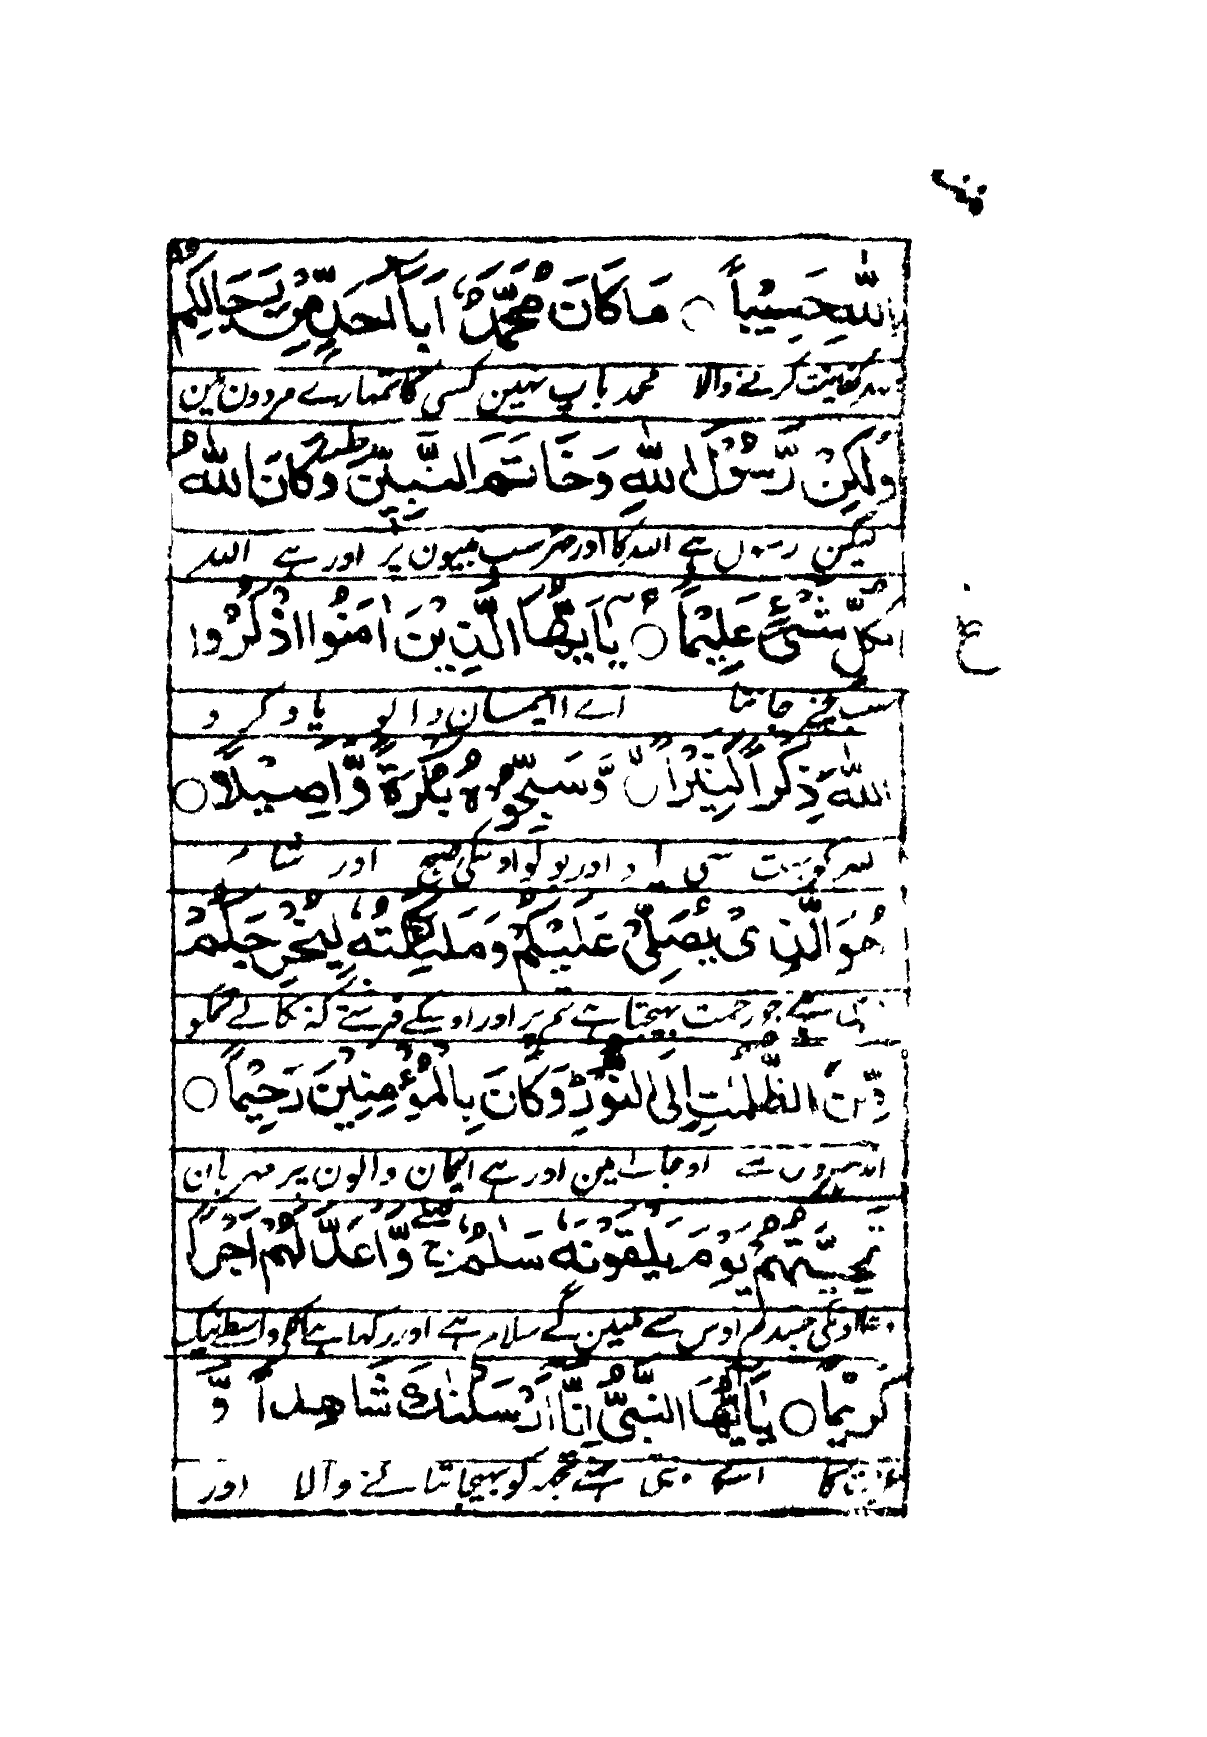 اللهِ حَسِيْبًا ○ مَا كَانَ مُحَمَّدٌ اَبَآ اَحَدٍ مِّنْ رِّجَالِكُمْ
کفایت کرنے والا محمد باپ نہین کسی کا تمہارے مردون مین
وَلٰكِنْ رَّسُوْلَ اللهِ وَخَاتَمَ النَّبِيّٖنَ ط وَكَانَ اللهُ
لیکن رسول ہے اللہ کا اور مہر سب نبیون پر اور ہے اللہ
بِكُلِّ شَيْءٍ عَلِيْمًا ○ يٰٓاَيُّهَا الَّذِيْنَ اٰمَنُوا اذْكُرُوا
ع
سب چیز جانتا اے ایمان والو یاد کرو
اللهَ ذِكْرًا كَثِيْرًا ○ وَّسَبِّحُوْهُ بُكْرَةً وَّاَصِيْلًا ○
اللہ کو بہت سی اور صبح اور
هُوَ الَّذِيْ يُصَلِّيْ عَلَيْكُمْ وَمَلٰٓئِكَتُهٗ لِيُخْرِجَكُمْ
ہے جو رحمت بھیجتا ہے تم پر اور اوسکے فرشتے کہ نکالے تمکو
مِّنَ الظُّلُمٰتِ اِلَى النُّوْرِ ط وَكَانَ بِالْمُؤْمِنِيْنَ رَحِيْمًا ○
اندہیرون سے اوجالے مین اور ہے ایمان والون پر مہربان
تَحِيَّتُهُمْ يَوْمَ يَلْقَوْنَهٗ سَلٰمٌ ج وَّاَعَدَّ لَهُمْ اَجْرًا
اونکی جسدن اوس سے ملین گے سلام ہے اور رکہا ہے واسطے نیک
كَرِيْمًا ○ يٰٓاَيُّهَا النَّبِيُّ اِنَّآ اَرْسَلْنٰكَ شَاهِدًا وَّ
کا اے نبی ہمنے تجہہ کو بہیجا بتانے والا اور